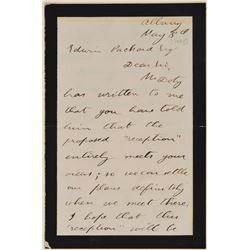 Albany
May 3d
Edwin Packard Esq
Dear Sir,
Mr Doty
has written to me
that you have told
him that the
proposed "reception"
entirely meets your
views; so we can settle
our plans definitely
when we meet there.
I hope that this
"reception" will be